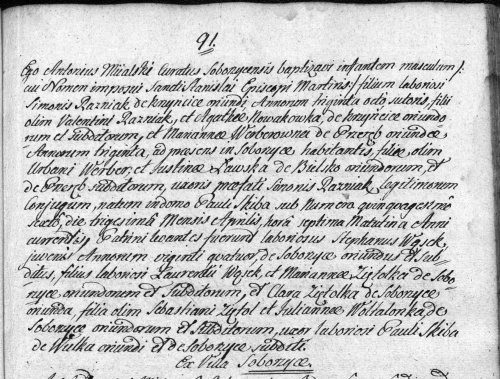 91.
Ego Antonius Mijalski Curatus Soboycensis baptizavi infantem masculum /:
cui Nomen imposui Sancti Stanislai Episcopi Martiris:/ filium laboriosi
Simonis Razniak de Krynice oriundi Annorum triginta octo, sutoris, filii
olim Valentini Razniak, et Agathae Nowakowka, de Krynice oriundo
rum et subditorum, et Mariannae Werberowna de oriundae,
Annorum triginta, ad praesens in Sobocyce habitantis, filiae, olim
Urbani Werber, et Justinae Ławska de Bielsko oriundorum, et
de subditorum, uxoris praefati Simonis Razniak legitimorum
Conjugum, natum in domo Pauli Skiba sub Numero quinquagesimo
sexto, die trigesima Mensis Aprilis, hora septima Matutina Anni
currentis, Patrini levantes fuerunt laboriosus Stephanus Wąsek,
juvenis Annorum viginti quatuor, de Sobocyce oriundus et Sub
ditus, filius laboriosi Laurentii Wąsek et Mariannae Zyfolka de Sobo
nyce oriundorum et Subditorum, et Clara Zyfolka de Sobocyce
oriunda, filia olim Sebastiani Zyfol et Juliannae de
Sobocyce oriundorum et Subditorum, uxor laboriosi Pauli Skiba
de Wulka oriundi et de Sobocyce subditi.
Ex Villa Sobocyce.